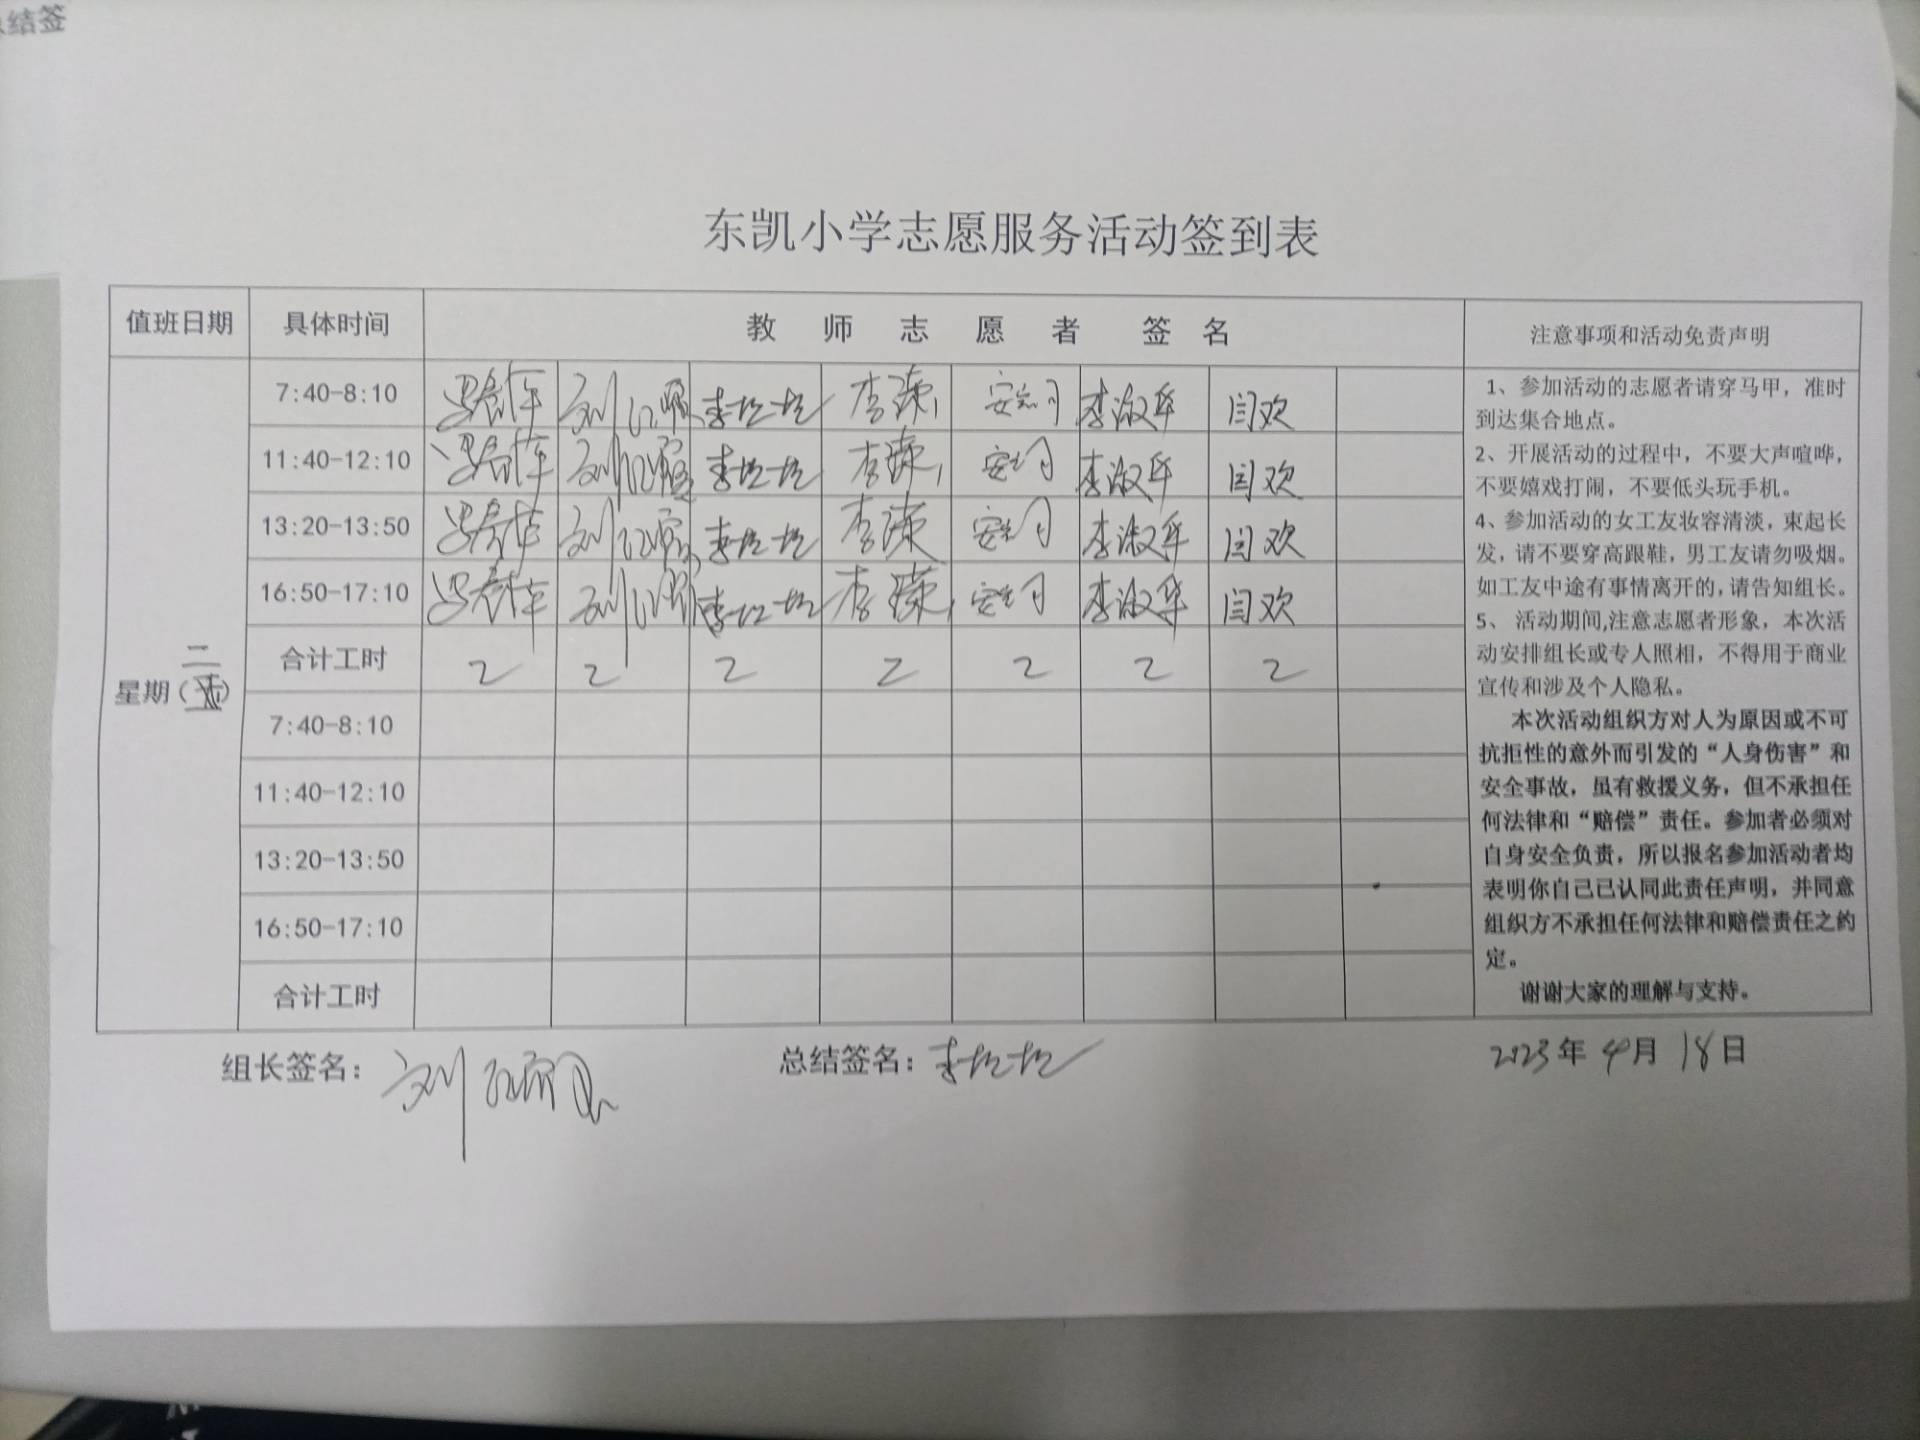 结签
东凯小学志愿服务活动签到表
值班日期 具体时间 教师志愿者签名 注意事项和活动免责声明
7:40-8:10 李坎坎 李淑华 闫欢
11:40-12:10 李坎坎 李淑华 闫欢
13:20-13:50 李坎坎 李淑华 闫欢
16:50-17:10 李坎坎 李淑华 闫欢
合计工时 2 2 2 2 2 2 2
二
星期()
7:40-8:10
11:40-12:10
13:20-13:50
16:50-17:10
合计工时
1、参加活动的志愿者请穿马甲，准时
到达集合地点。
2、开展活动的过程中，不要大声喧哗，
不要嬉戏打闹，不要低头玩手机。
4、参加活动的女工友妆容清淡，束起长
发，请不要穿高跟鞋，男工友请勿吸烟。
如工友中途有事情离开的，请告知组长。
5、 活动期间,注意志愿者形象，本次活
动安排组长或专人照相，不得用于商业
宣传和涉及个人隐私。
本次活动组织方对人为原因或不可
抗拒性的意外而引发的“人身伤害”和
安全事故，虽有救援义务，但不承担任
何法律和“赔偿”责任。参加者必须对
自身安全负责，所以报名参加活动者均
表明你自己已认同此责任声明，并同意
组织方不承担任何法律和赔偿责任之约
定。
谢谢大家的理解与支持。
组长签名： 刘 总结签名：李坎坎 2023年4月18日